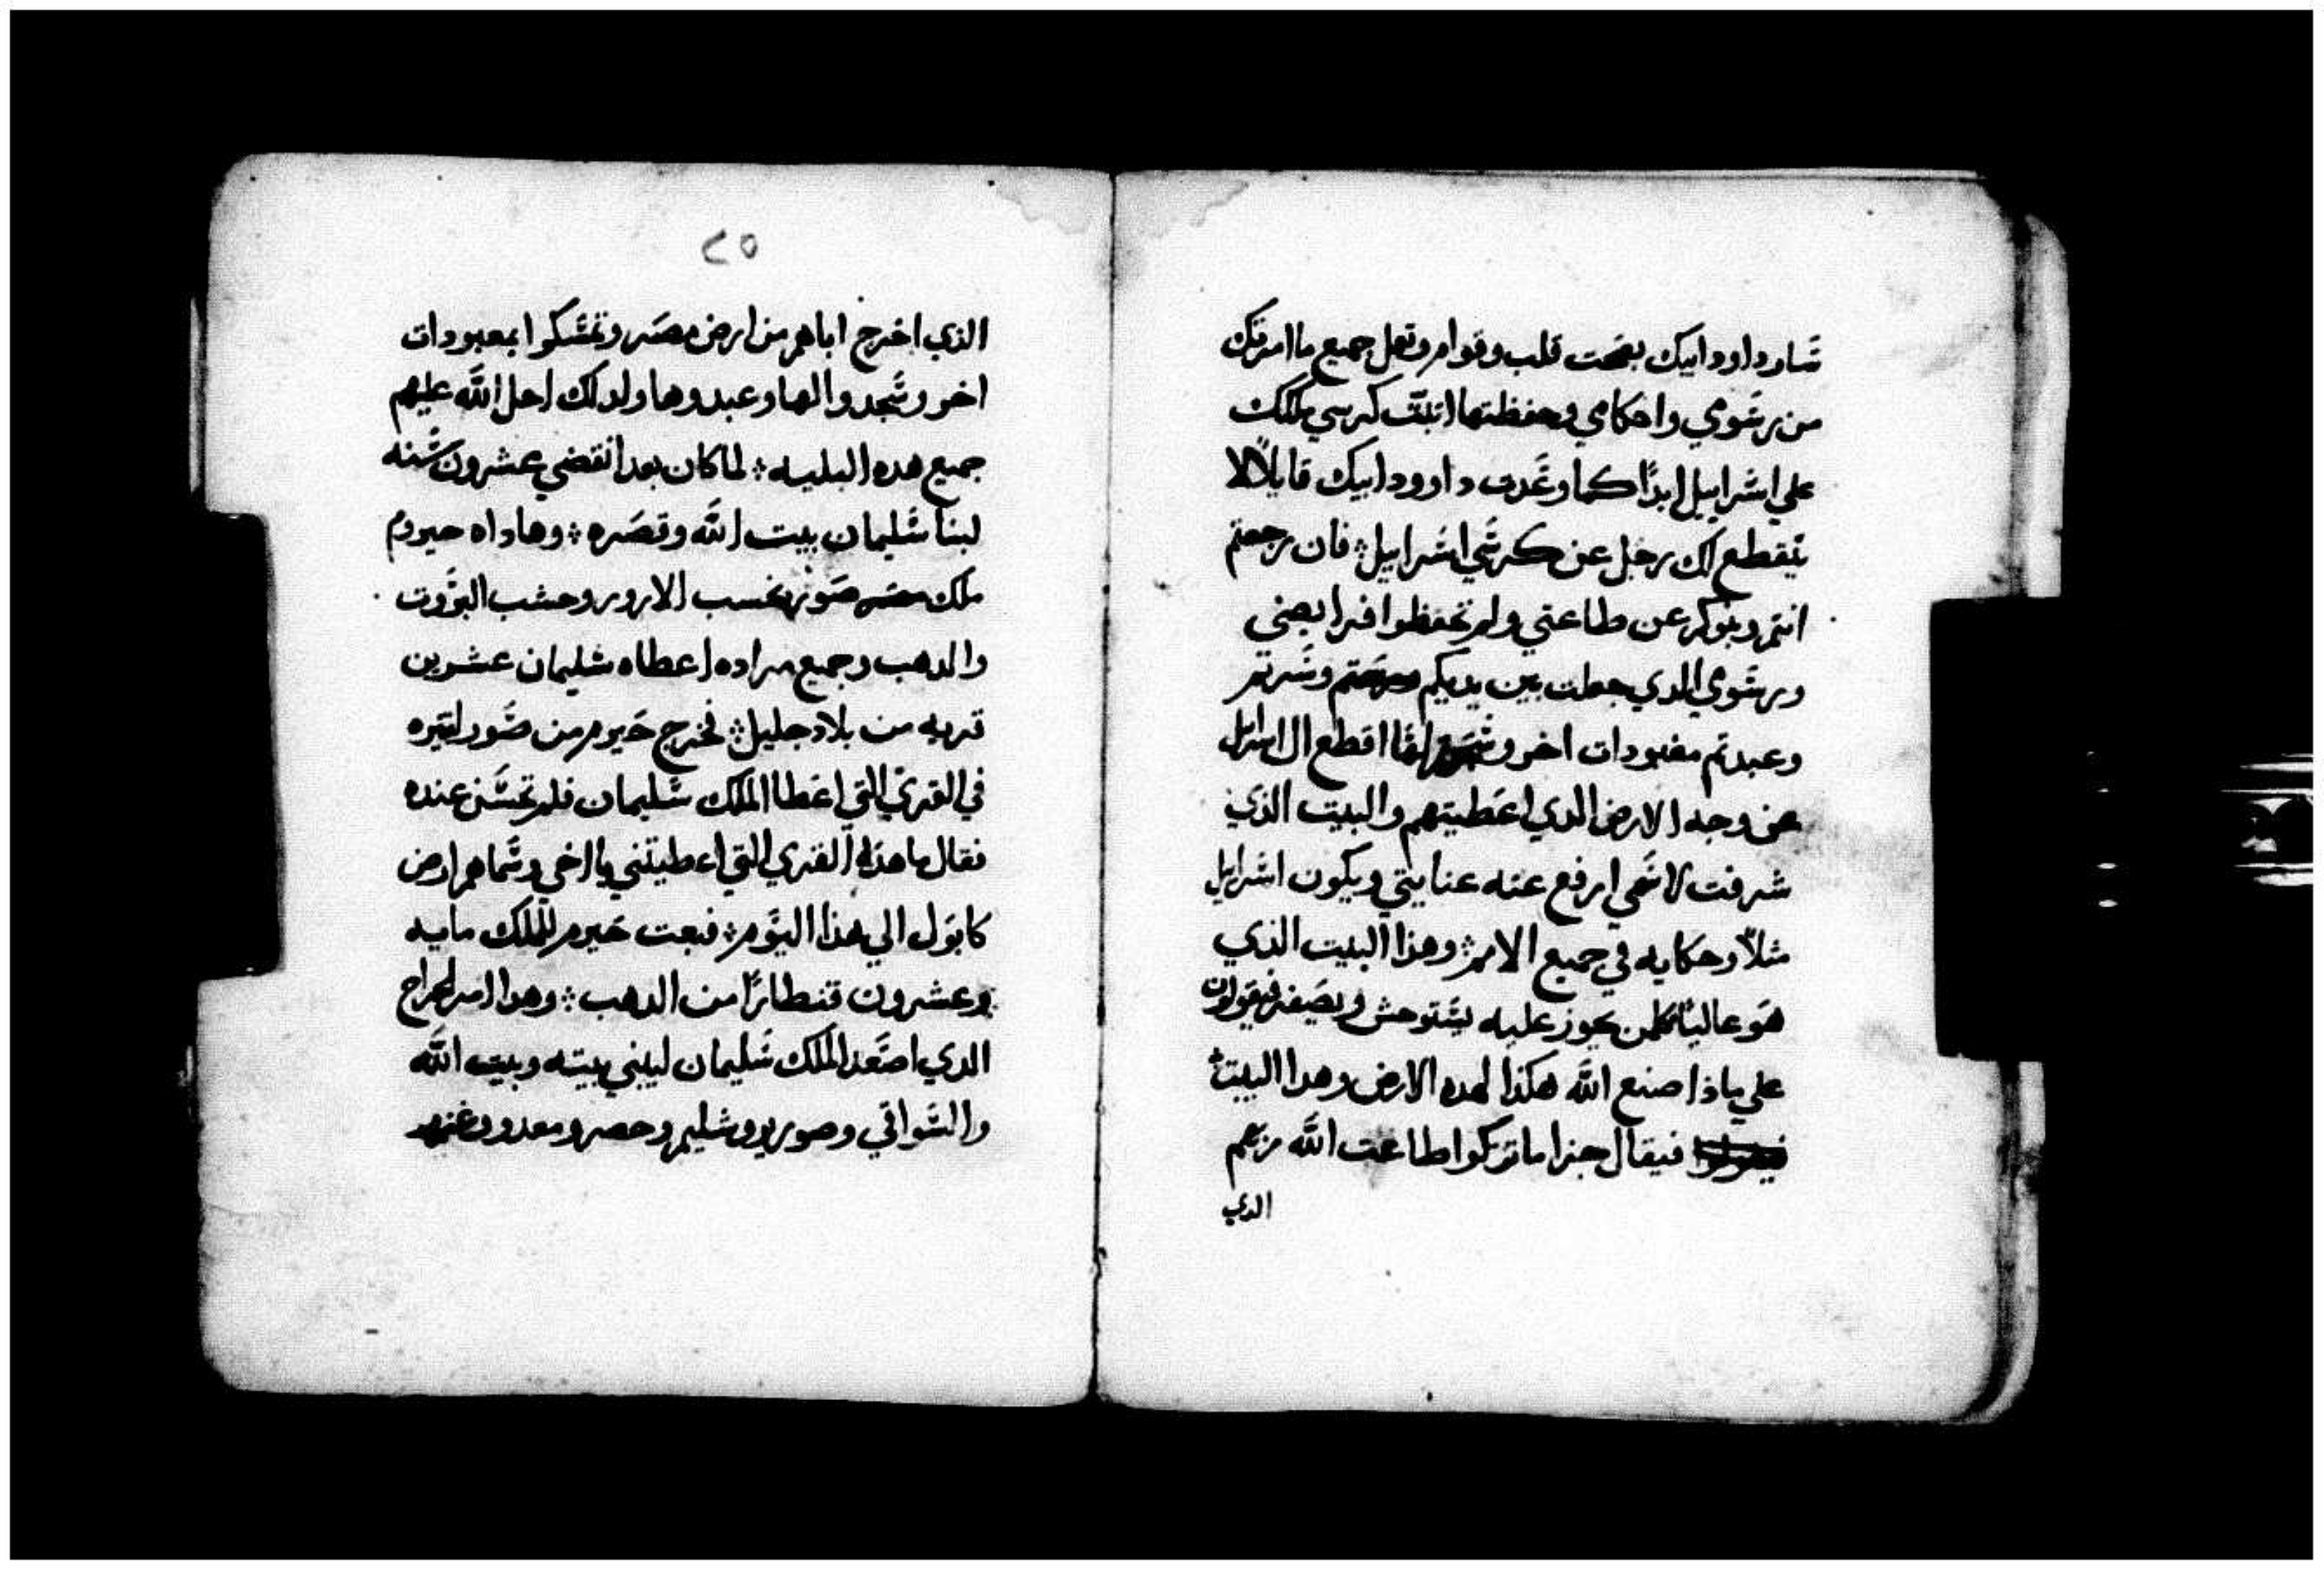 سار داود ابيك بصحت قلب وقوام وتعمل جميع ما امرتك
من رسومي واحكامي وحفظتها اتبتت كرسي ملكك
علي اسراييل ابدًا كما وعدت داوود ابيك قايلاً لا
ينقطع لك رجل عن كرسي اسراييل فان رجعتم
انتم وبنوكم عن طاعتي ولم تحفظوا فرايضي
ورسومي الدي جعلت بين يديكم وسرتم
وعبدتم معبودات اخر لها اقطع ال اسرايل
عن وجه الارض الدي اعطيتهم والبيت الذي
شرفت لاسمي ارفع عنه عنايتي ويكون اسرايل
مثلاً وحكايه في جميع الامم وهذا البيت الذي
هو عاليًا كلمن يجوز عليه يستوحش ويصفر فيقولون
علي ماذا صنع الله هكذا لهده الارض وهدا البيت
فيقال جزا ما تركوا طاعت الله ربهم
الدي
٢٥
الذي اخرج اباهم من ارض مصر وتمسكوا بمعبودات
اخر وسجدوا لها وعبدوها ولدلك احل الله عليهم
جميع هده البليه لما كان بعد انقضي عشرون سنه
لبنا سليمان بيت الله وقصره وهاداه حيروم
ملك صور بخسب الارور وحشب البروت
والدهب وجميع مراده اعطاه سليمان عشرين
قريه من بلاد جليل فخرج حيرم من صور لتيره
في القري التي اعطا الملك سليمان فلم تحسن عنده
فقال ما هذه القري التي اعطيتني يا اخي وسماهم ارض
كابول الي هذا اليوم فبعت حيرم للملك مايه
وعشرون قنطارًا من الدهب وهدا امر الخراج
الدي اصعد الملك سليمان ليبني بيته وبيت الله
والسواقي وصور يروشليم وحصر ومعدو وغيرهم